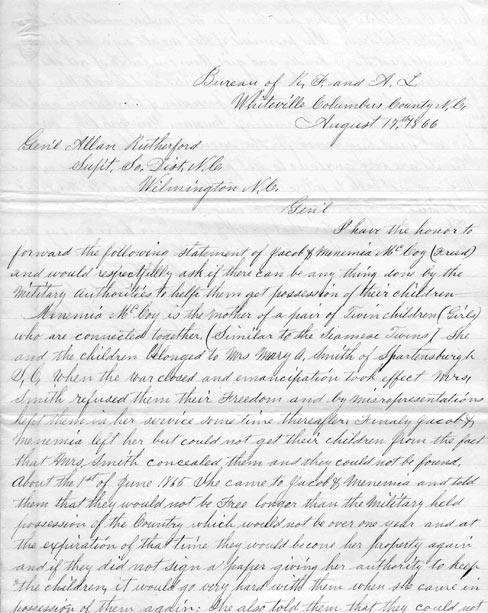 Bureau of R. F. and A. L
Whiteville Columbus County N. C.
August 17th 1866
Gen'l Allan Rutherford
Sup't. So. Dist. N. C.
Wilmington N. C.
Gen'l
I have the honor to
forward the following statement of Jacob & Menemia Mc Coy (Freed)
and would respectfully ask if there can be any thing done by the
Military Authorities to helpe them get possession of their children
Menemia Mc Coy is the mother of a pair of Twin children (Girls)
who are connected together. (Similar to the Siamese Twins,) She
and the children belonged to Mrs Mary A. Smith of Spartensburgh
S. C. When the war closed and emancipation took effect Mrs,
Smith refused them their Freedom and by misrepresentations
kept them in her service some time thereafter. Finaly Jacob &
Menemia left her but could not get their children from the fact
that Mrs. Smith concealed them and they could not be found,
About the 1st of June 1865 She came to Jacob & Menemia and told
them that they would not be Free longer than the Military held
possession of the Country which would not be over one year and at
the expiration of that time they would become her property again
and if they did not sign a paper giving her authority to keep
the children, it would go very hard with them when she came in
possession of them again: She also told them that they could not